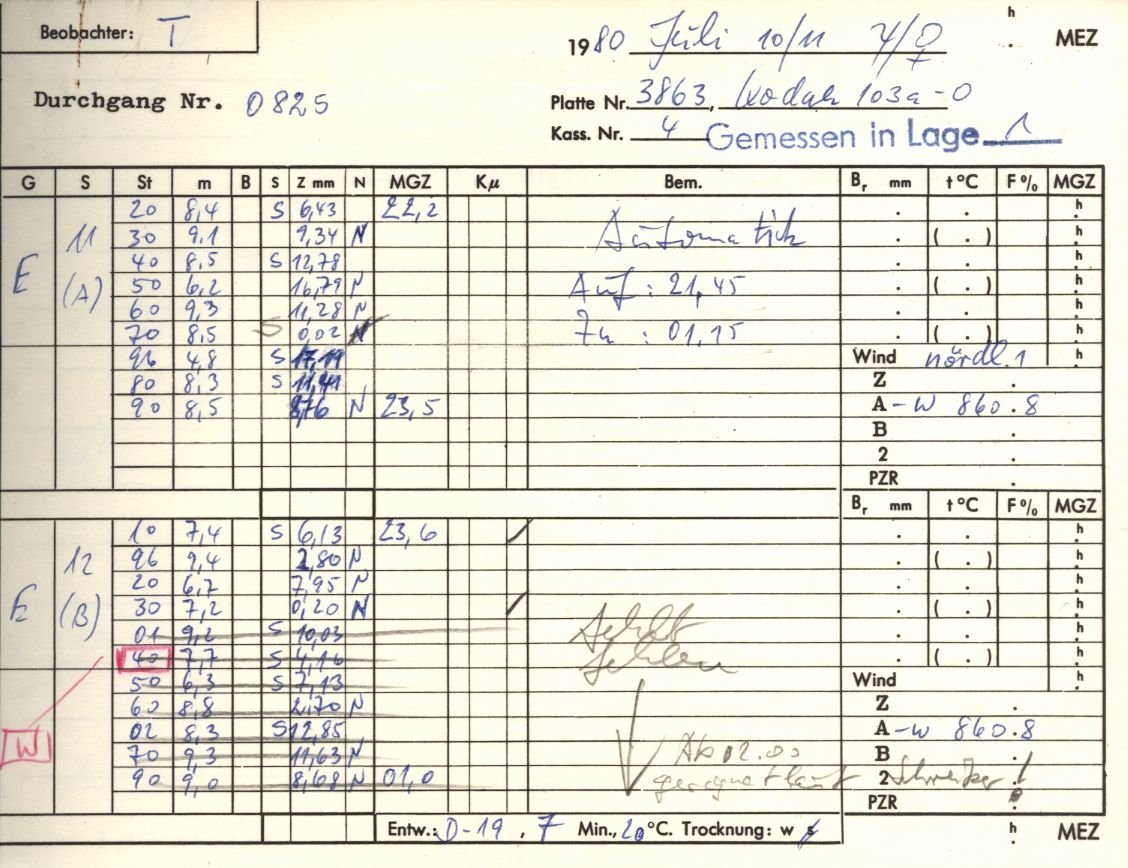 Beobachter: T
h
1980 Juli 10/11 4/♀ . MEZ
Durchgang Nr. 0825
Platte Nr. 3863, Kodak 103a-O
Kass. Nr. 4 Gemessen in Lage 1
G S St m B S Z mm N MGZ Kμ Bem. Br mm t°C F% MGZ
20 8,4 S 6,43 22,2 . . h
11 30 9,1 9,34 N Automatik . ( . ) h
40 8,5 S 12,78 . . h
E (A) 50 6,2 16,79 N Auf: 21,45 . ( . ) h
60 9,3 11,28 N . . h
70 8,5 S 0,02 N Zu: 01,15 . ( . ) h
96 4,8 S 17,19 Wind nördl. 1 h
80 8,3 S 11,41 Z .
90 8,5 8,76 N 23,5 A -W 860.8
B .
2 .
PZR .
Br mm t°C F% MGZ
10 7,4 S 6,13 23,6 . . h
12 96 9,4 2,80 N . ( . ) h
20 6,7 7,95 N . . h
E (B) 30 7,2 0,20 N . ( . ) h
01 9,2 S 10,03 . . h
40 7,7 S 4,16 fehlen . ( . ) h
50 6,3 S 7,13 Wind h
60 8,8 2,70 N Z .
02 8,3 S 12,85 A -W 860.8
W 70 9,3 11,63 N Ab 02.00 B .
90 9,0 8,68 N 01,0 geregnet laut 2 !
PZR .
Entw.: D-19, 7 Min., 20°C. Trocknung: w h . MEZ